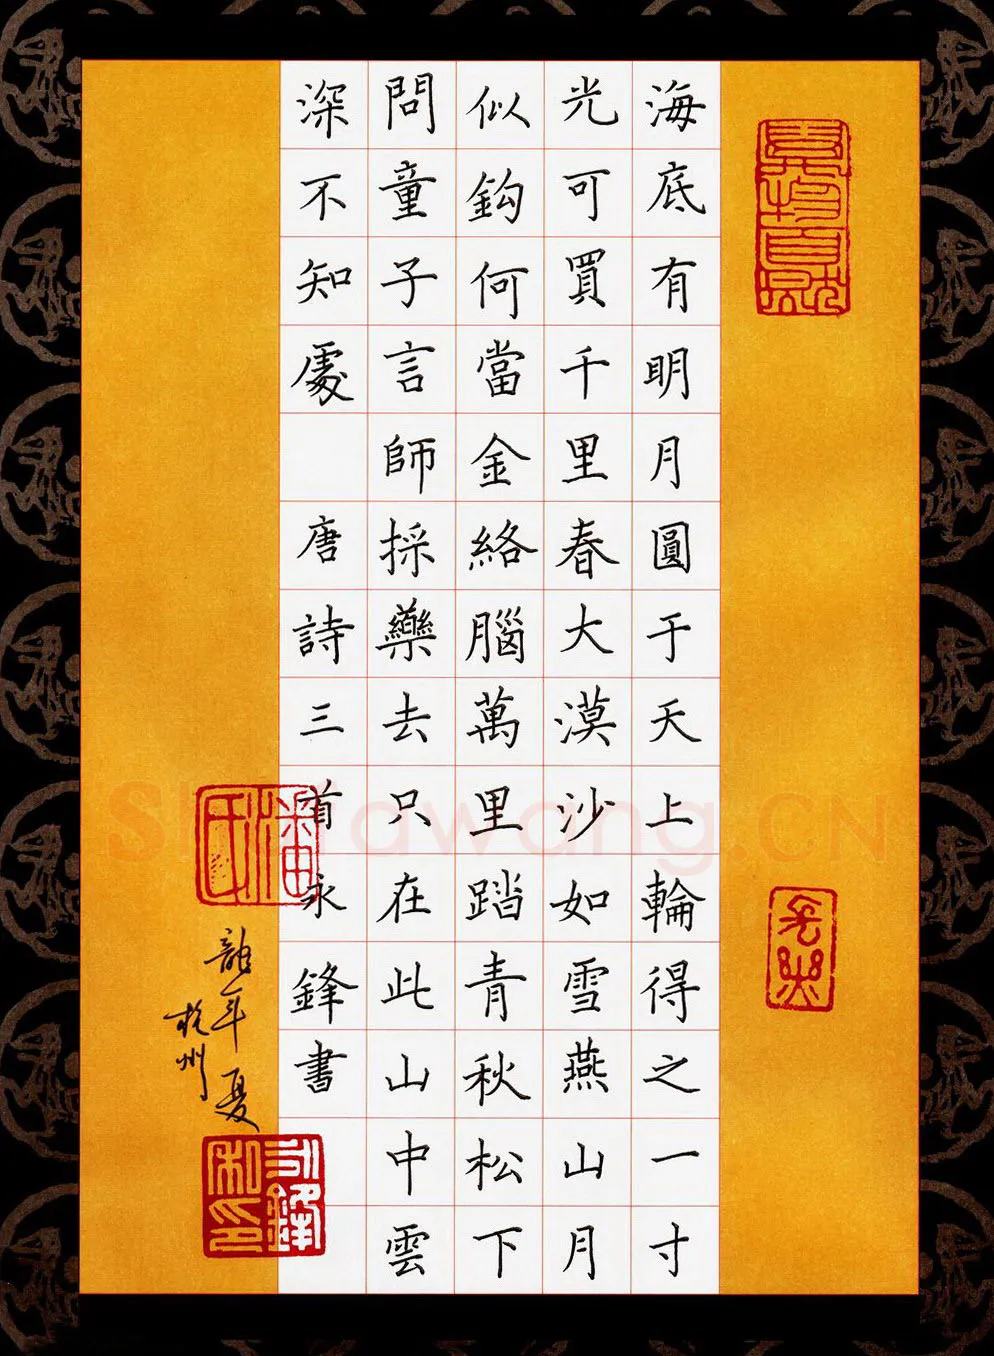 海底有明月圓于天上輪得之一寸
光可買千里春大漠沙如雪燕山月
似鈎何當金絡腦萬里踏青秋松下
問童子言師採藥去只在此山中雲
深不知處 唐詩三首永鋒書
龍年夏
杭州
潘氏
永鋒私印